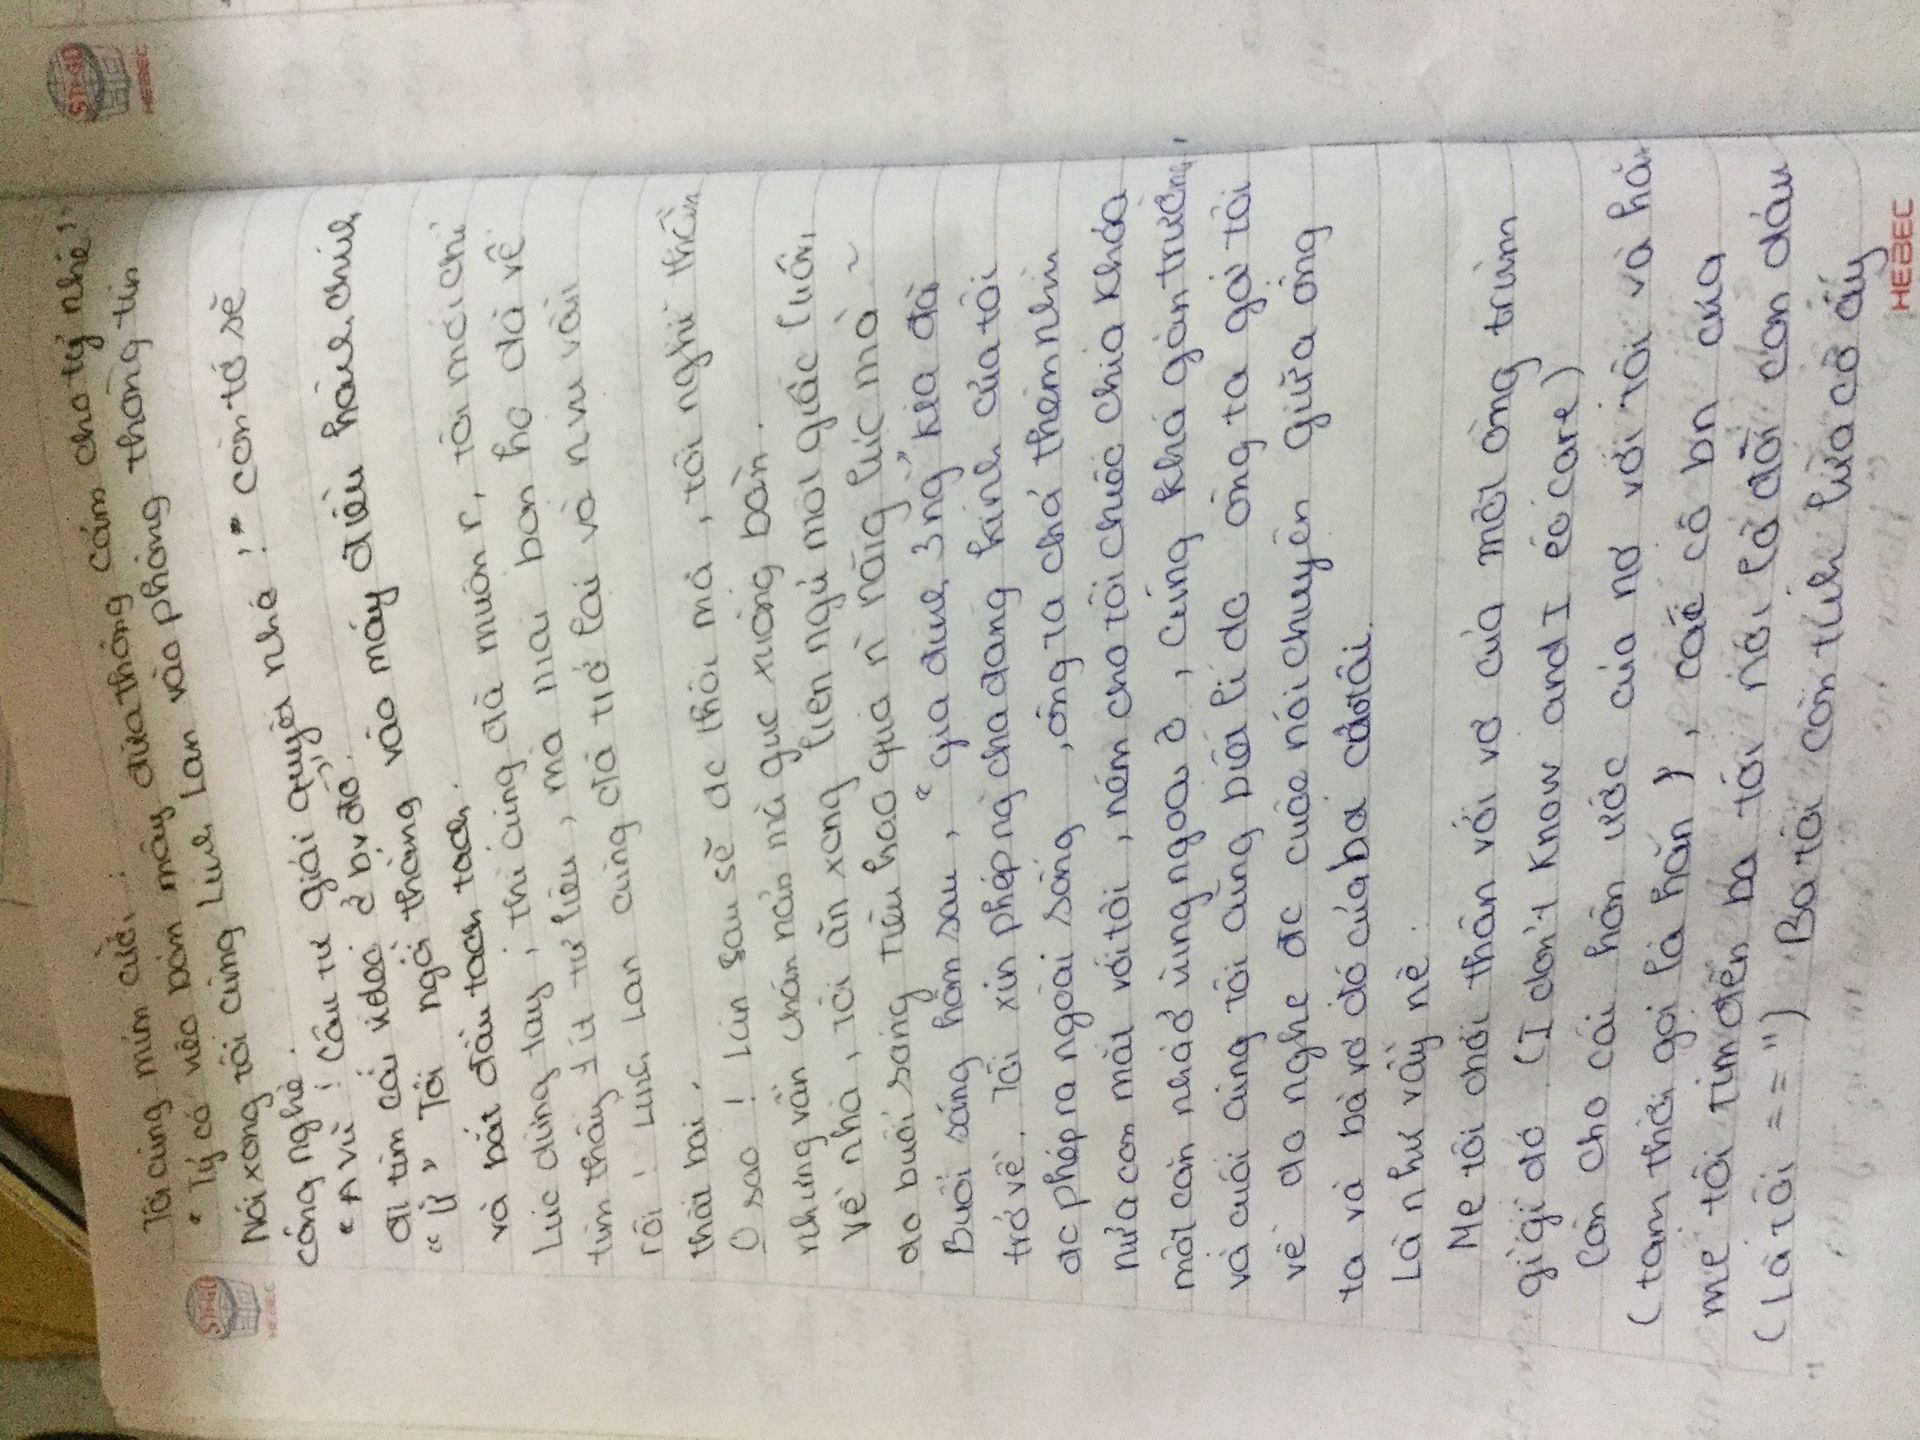 Tôi cũng mỉm cười:
" Tý có vẻo bám mây đưa thông cảm cho tý nhé"
Nói xong tôi cùng Linh Lan vào phòng thông tin
công nghệ.
" A Vũ ! Câu tư giải quyết nhé !" còn tớ sẽ
đi tìm cái video ở bv đó."
" Ừ " Tôi ngồi thẳng vào máy điều hành chính
và bắt đầu tach tach.
Lúc dừng tay, thì cũng đã muộn r, tôi mới chỉ
tìm thấy 1 ít tư liệu, mà 2 bọn họ đã về
rồi ! Linh Lan cũng đã trở lại và nvu vẫn
thất bại.
O sao ! Lần sau sẽ đc thôi mà, tôi nghĩ thầm
nhưng vẫn chán nản mà gục xuống bàn.
Về nhà, tôi ăn xong liền ngủ một giấc luôn,
do buổi sáng tiêu hao quá n năng lực mà ~
Buổi sáng hôm sau, " gia đình 3 ng " kia đã
trở về. Tôi xin phép ng cha đáng kính của tôi
đc phép ra ngoài sống, ông ta chả thèm nhìn
nửa con mắt với tôi, ném cho tôi chiếc chìa khóa
một căn nhà ở vùng ngoại ô, cũng khá gần trường,
và cuối cùng tôi cũng biết lí do ông ta gọi tôi
về do nghe đc cuộc nói chuyện giữa ông
ta và bà vợ đó của ba tôi.
Là như vầy nè:
Mẹ tôi chơi thân với vợ của một ông trùm
gì gì đó (I don't know and I éo care)
Còn cho cái hôn ước của nợ với tôi và hắn
(tạm thời gọi là hắn), cái cô bn của
mẹ tôi tìm đến ba tôi nói là đòi con dâu
(Là tôi = = ") Ba tôi còn tính lừa cô ấy
HEBEC